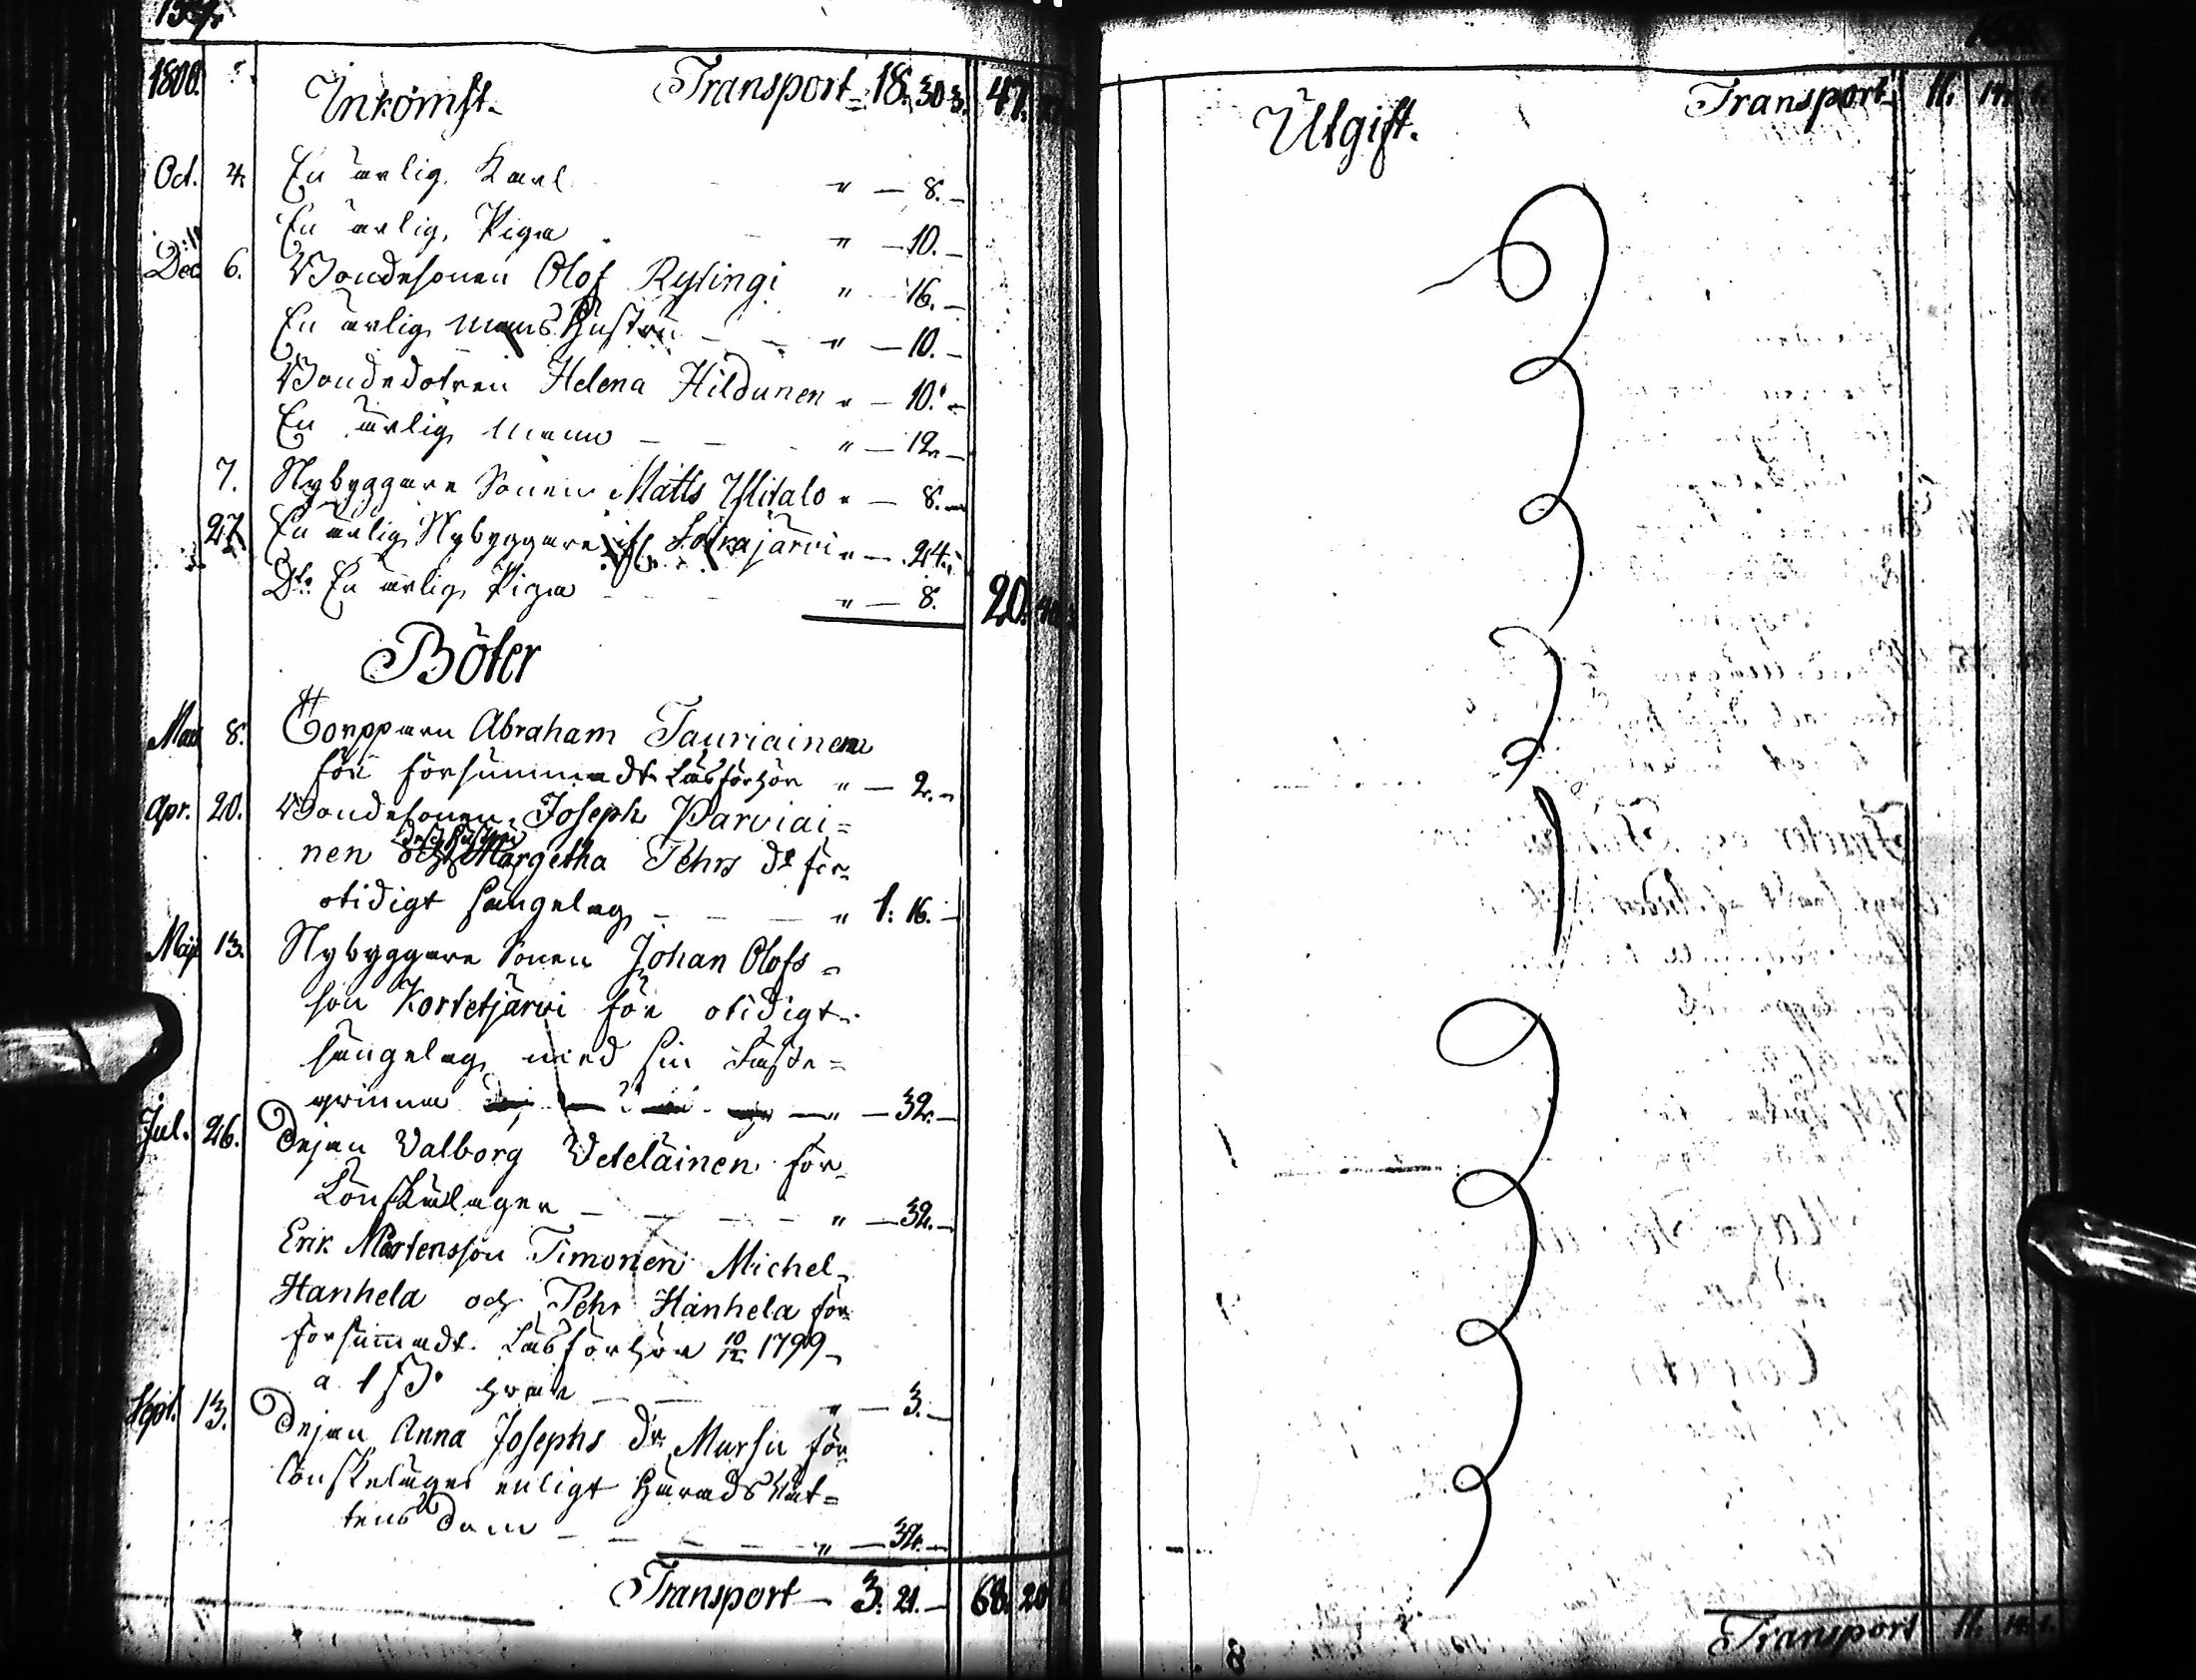 1800. Inkomst. Transport 18. 30 3. 47.
Oct. 4. En ärlig Karl " — 8. —
En ärlig Piga " — 10. —
Dec 6. Bondesonen Olof Rysingi " 16. —
En ärlig mans Hustru — — " — 10. —
Bondedotren Helena Hildunen " — 10. —
En ärlig man — — " — 12 —
7. Nybyggare Sonen Matts Ylitalo " — 8. —
27. En ärlig Nybyggare Loikajärvi " — 24.
Dto En ärlig Piga " — 8. 20.
Böter
Maij 8. Torpparn Abraham Tauriainen
för försummadt Läsförhör " — 2. —
Apr. 20. Bondesonen Joseph Parviai=
dess hustru
nen och Margetha Pehrs dr för
otidigt sängelag — — — " 1: 16. —
Maj 13. Nybyggare Sonen Johan Olofs=
son Kortetjärvi för otidigt
sängelag med sin Fäste=
qvinna " — 32. —
Jul. 26. Dejan Valborg Veteläinen för
Lönskaläger — — — — " — 32. —
Erik Mårtensson Timonen Michel
Hanhela och Pehr Hanhela för
försummadt Läsförhör 10/12 1799
a 1 s. hvar — — " — 3. —
Sept. 13. Dejan Anna Josephs dr Mursu för
lönskeläger enligt HäradsRät=
tens Dom — — — — " — 32. —
Transport — 3. 21. — 68. 20
Utgift. Transport 11. 14. 1.
Transport 11. 14. 1.